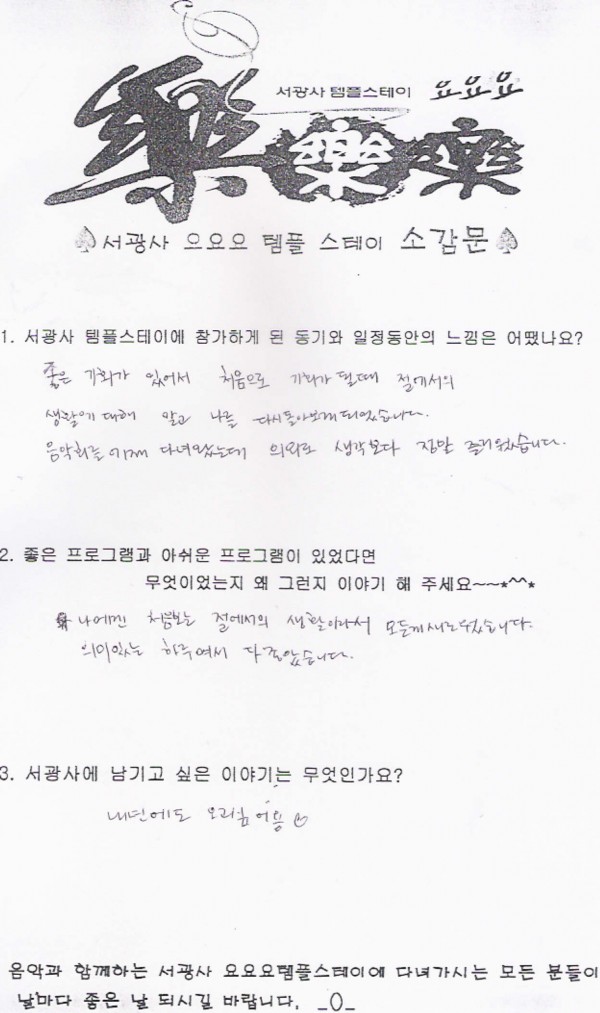 서광사 템플스테이 요요요
樂樂樂
서광사 요요요 템플 스테이 소감문
1. 서광사 템플스테이에 참가하게 된 동기와 일정동안의 느낌은 어땠나요?
좋은 기회가 있어서 처음으로 기회가 될때 절에서의
생활에 대해 알고 나를 다시돌아보게되었습니다.
음악회를 다녀왔는데 의외로 생각보다 정말 즐거웠습니다.
2. 좋은 프로그램과 아쉬운 프로그램이 있었다면
무엇이었는지 왜 그런지 이야기 해 주세요~~*^^*
나에겐 처음보는 절에서의 생활이라서 모든게새로웠습니다.
의미있는 하루여서 다좋았습니다.
3. 서광사에 남기고 싶은 이야기는 무엇인가요?
내년에도
음악과 함께하는 서광사 요요요템플스테이에 다녀가시는 모든 분들이
날마다 좋은 날 되시길 바랍니다. _()_